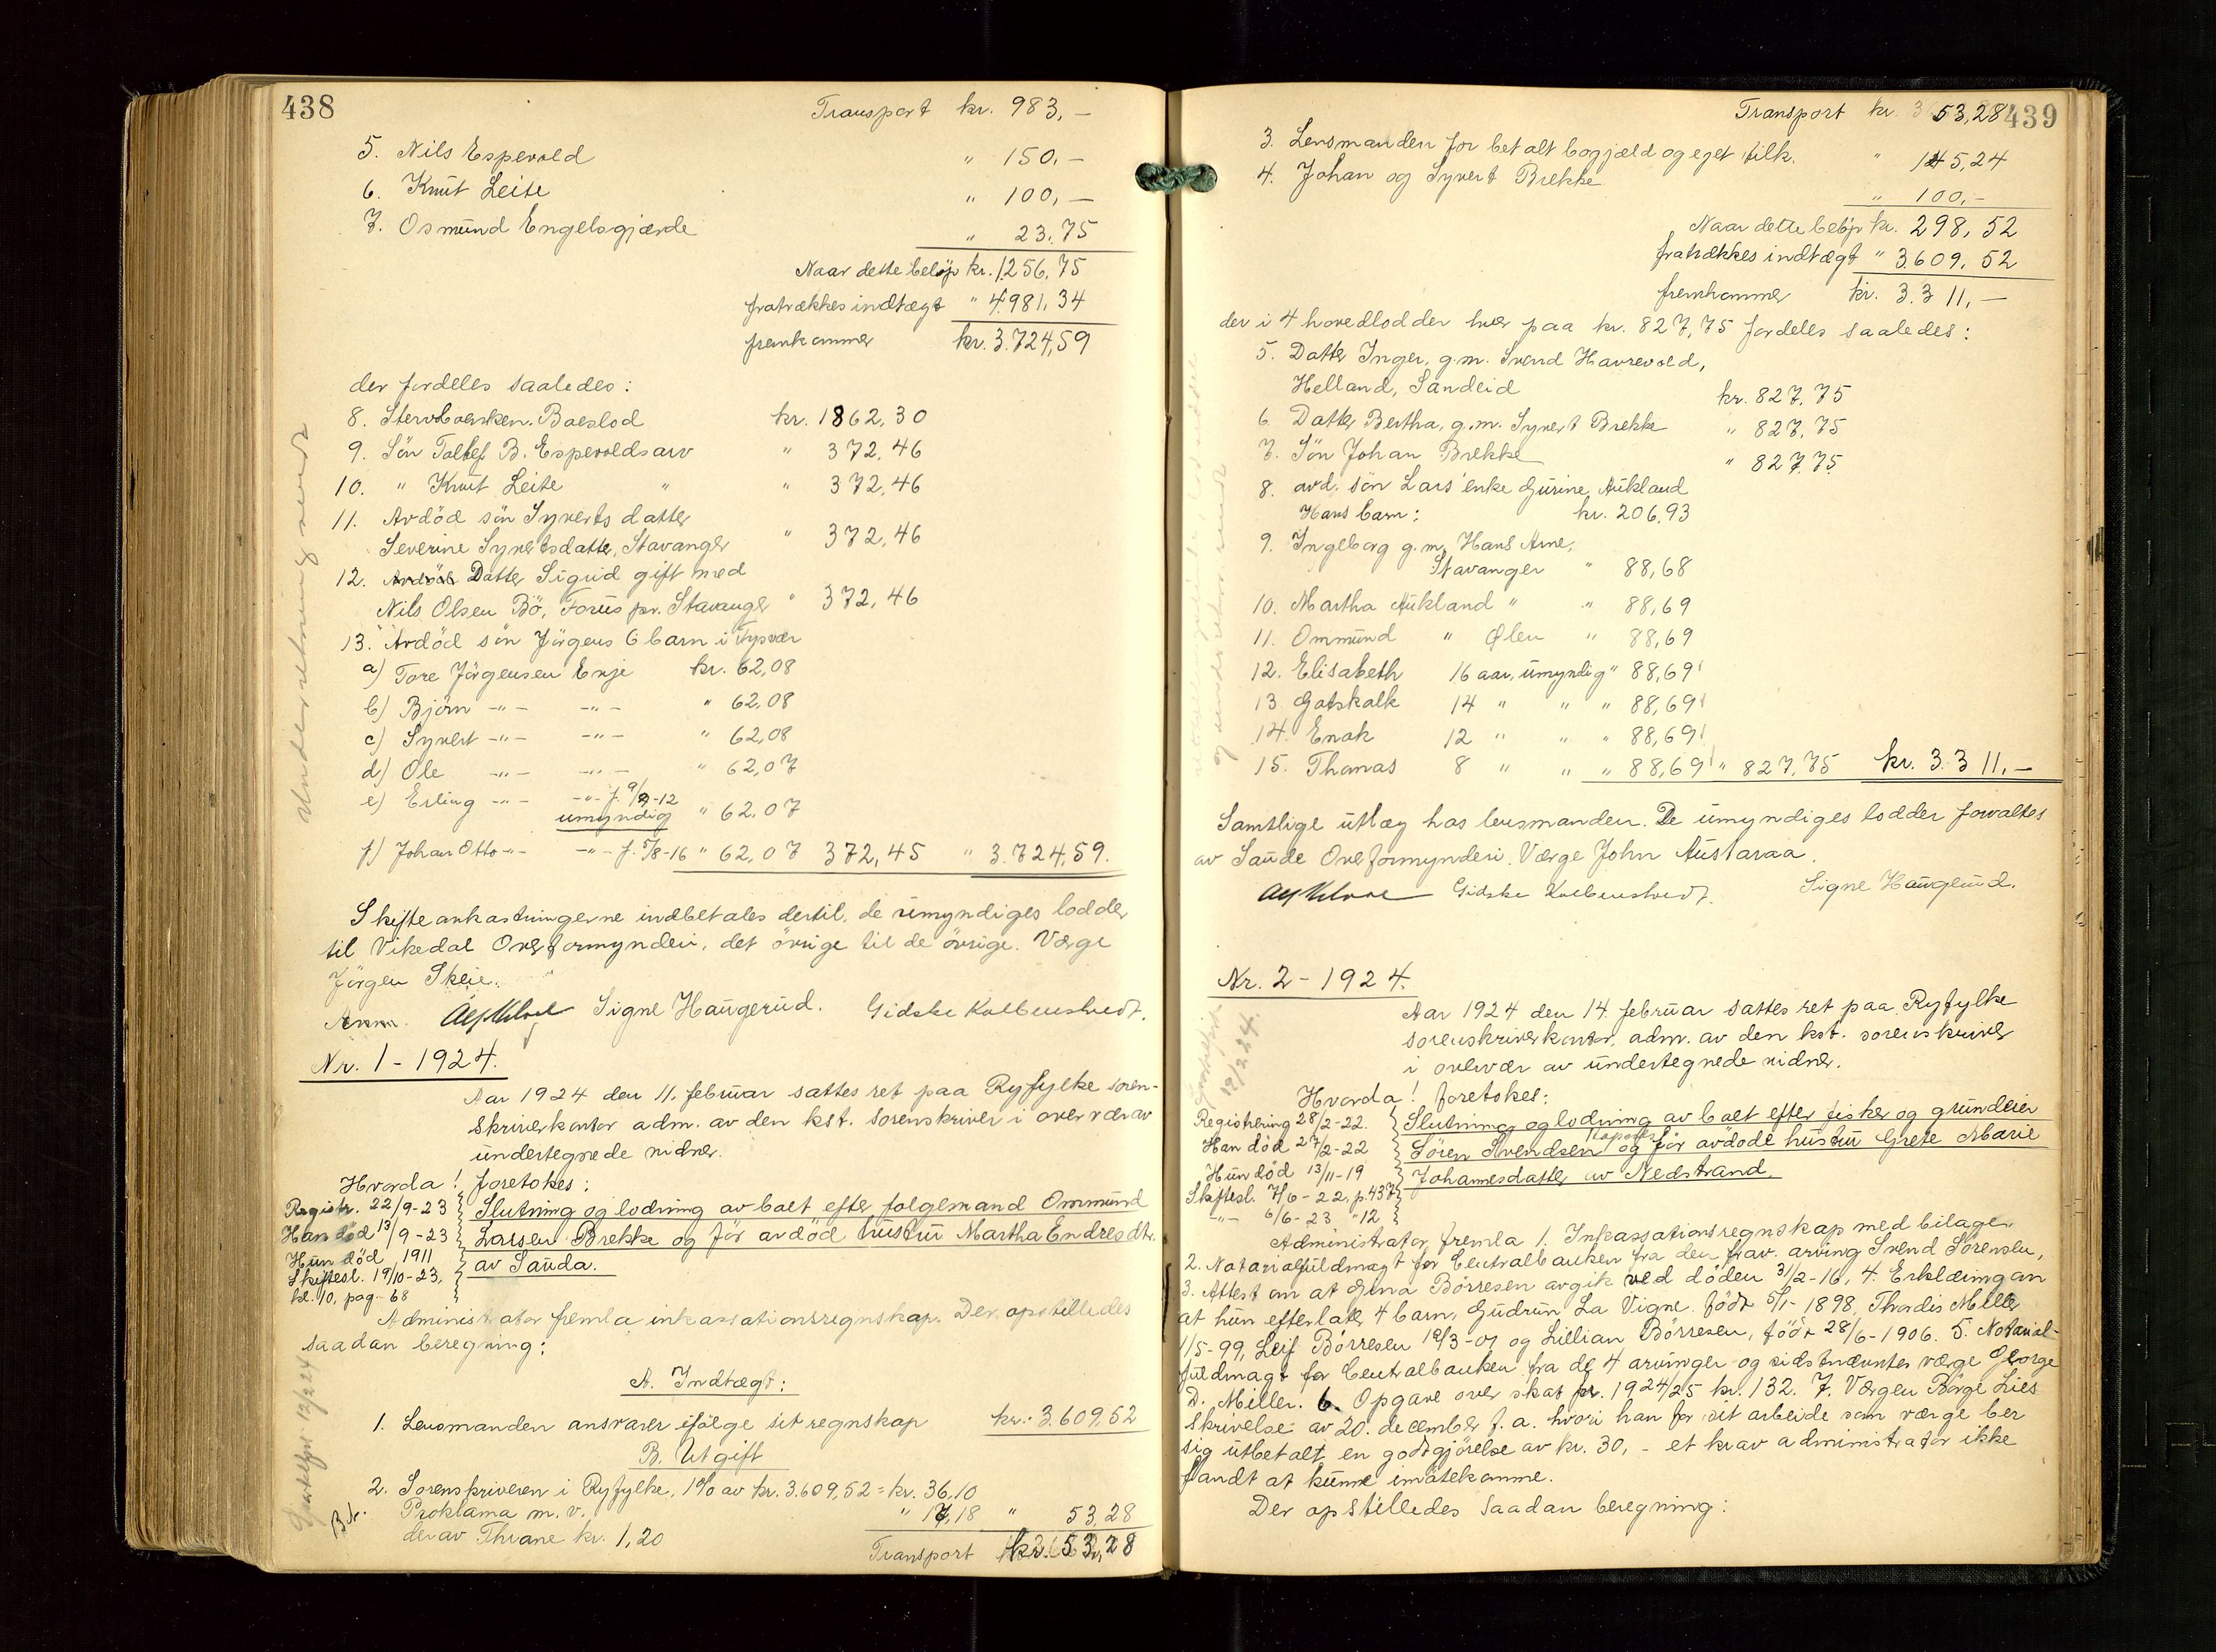 438
Transport kr. 983,-
5. Nils Espevold " 150,-
6. Knut Leite " 100,-
7. Osmund Engelsgjærde " 23.75
Naar dette beløp kr. 1256,75
fratrækkes indtægt " 4.981,34
fremkommer kr. 3.724,59
der fordeles saaledes:
8. Stervboerskens Boeslod kr. 1862,30
9. Søn Tollef B. Espevolds arv " 372,46
10. " Knut Leite " " 372,46
11. Avdöd sön Syverts datter
Severine Syvertsdatter, Stavanger " 372,46
12. Avdöd Datter Sigrid gift med
Nils Olsen Bö, Forus pr. Stavanger " 372,46
13. Avdöd sön Jörgens 6 barn i Tysvær
a) Tore Jörgensen Erje kr. 62,08
b) Bjørn -"- -"- " 62,08
c) Syvert -"- -"- " 62,08
d) Ole -"- -"- " 62,07
e) Erling -"- -"- f. 9/9-12
umyndig " 62,07
f) Johan Otto -"- -"- f. 5/8-16 " 62,07 372,45 " 3.724,59.
Skifteomkastningerne indbetales dertil, de umyndiges lodder
til Vikedal Overformynderi, det övrige til de övrige. Værge
Jörgen Skeie.
Signe Haugerud. Gidske Kolbenstvedt.
Underretning sendt
Nr. 1 - 1924.
Aar 1924 den 11. februar sattes ret paa Ryfylke soren-
skriverkontor adm. av den kst. sorenskriver i overvær av
undertegnede vidner.
Hvorda! foretokes:
Registr. 22/9-23
Han död 13/9-23
Hun död 1911
Skiftesl. 19/10-23,
kl. 10, pag. 68
Slutning og lodning av boet efter folgemand Ommund
Larsen Brekke og för avdöd hustru Martha Endresdtr.
av Sauda.
Administrator fremla inkassationsregnskap. Der opstilledes
saadan beregning:
A. Indtægt:
1. Lensmanden ansvarer ifølge sit regnskap kr. 3.609,52
B. Utgift
2. Sorenskriveren i Ryfylke, 1% av kr. 3.609,52 = kr. 36,10
Proklama m. v. " 17,18 " 53,28
derav Thrane kr. 1,20
Transport kr. 53,28
439
Transport kr. 53,28
3. Lensmanden for betalt bogjæld og eget tilk. " 145,24
4. Johan og Syvert Brekke " 100,-
Naar dette beløp kr. 298,52
fratrækkes indtægt " 3.609,52
fremkommer kr. 3.311,-
der i 4 hovedlodder hver paa kr. 827,75 fordeles saaledes:
5. Datter Inger, g.m. Svend Havrevold,
Helland, Sandeid kr. 827,75
6. Datter Bertha, g.m. Syvert Brekke " 827,75
7. Sön Johan Brekke " 827,75
8. avd. sön Lars' enke Gurine Aukland
Hans barn: kr. 206,93
9. Ingeborg g.m. Hans Arne,
Stavanger " 88,68
10. Martha Aukland " " 88,69
11. Ommund " Ølen " 88,69
12. Elisabeth 16 aar, umyndig " 88,69
13. Gotskalk 14 " " " 88,69
14. Enok 12 " " " 88,69
15. Thomas 8 " " " 88,69 " 827,75 kr. 3.311,-
Samtlige utlæg hos lensmanden. De umyndiges lodder forvaltes
av Saude Overformynderi. Værge John Austaraa.
Gidske Kolbenstvedt. Signe Haugerud.
Nr. 2 - 1924.
Aar 1924 den 14. februar sattes ret paa Ryfylke
sorenskriverkontor, adm. av den kst. sorenskriver
i overvær av undertegnede vidner.
Hvorda! foretokes:
Registrering 28/2-22.
Han död 27/2-22
Hun död 13/11-19
Skiftesl. 7/6-22, p. 437
-"- 6/6-23 " 12
Slutning og lodning av boet efter fisker og grundeier
Sören Svendsen og för avdöde hustru Grete Marie
Johannesdatter av Nedstrand.
Administrator fremla 1. Inkassationsregnskap med bilager.
2. Notarialfuldmagt for Centralbanken fra den frav. arving Svend Sörensen,
3. Attest om at Gina Börresen avgik ved döden 31/2-16, 4. Erklæring om
at hun efterlater 4 barn, Gudrun La Vigne født 5/1-1898, Thordis Miller
1/5-99, Leif Börresen 12/3-01 og Lillian Börresen, födt 28/6-1906. 5. Notarial-
fuldmagt for Centralbanken fra de 4 arvinger og sidstnævntes værge George
D. Miller. 6. Opgave over skat pr. 1924/25 kr. 132. 7. Værgen Börge Lies
skrivelse av 20. december f. a. hvori han for sit arbeide som værge ber
sig utbetalt en godtgjörelse av kr. 30,- et krav administrator ikke
fandt at kunne imøtekomme.
Der opstilledes saadan beregning: